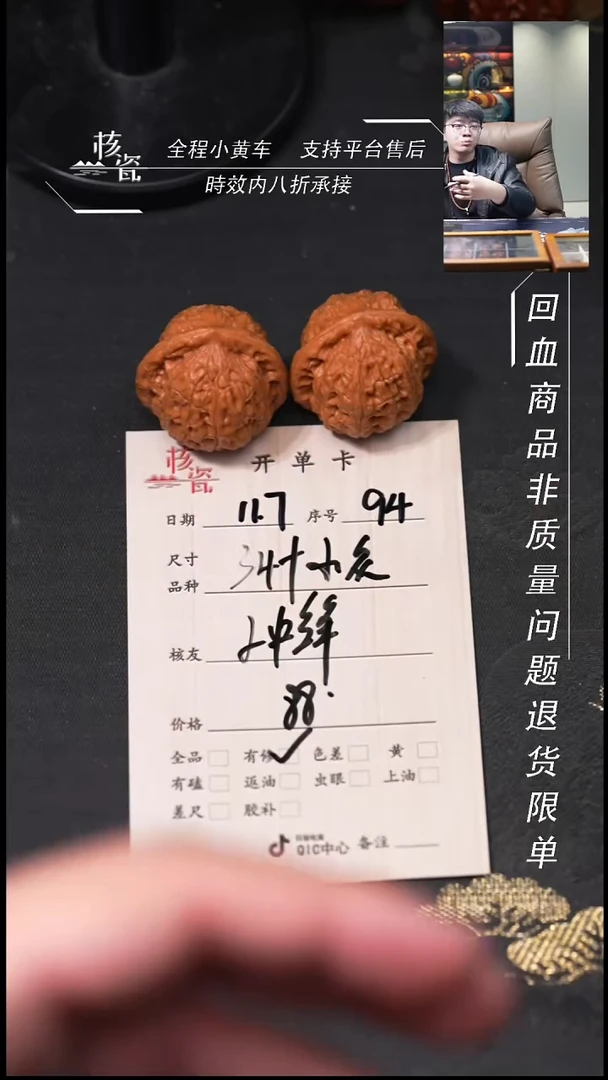 核瓷
全程小黄车 支持平台售后
時效内八折承接
回血商品非质量问题退货限单
核瓷 开单卡
日期 11.7 序号 94
尺寸
品种 34+小众
核友
价格 88.
全品 有修 色差 黄
有磕 返油 虫眼 上油
差尺 胶补
QIC中心 备注